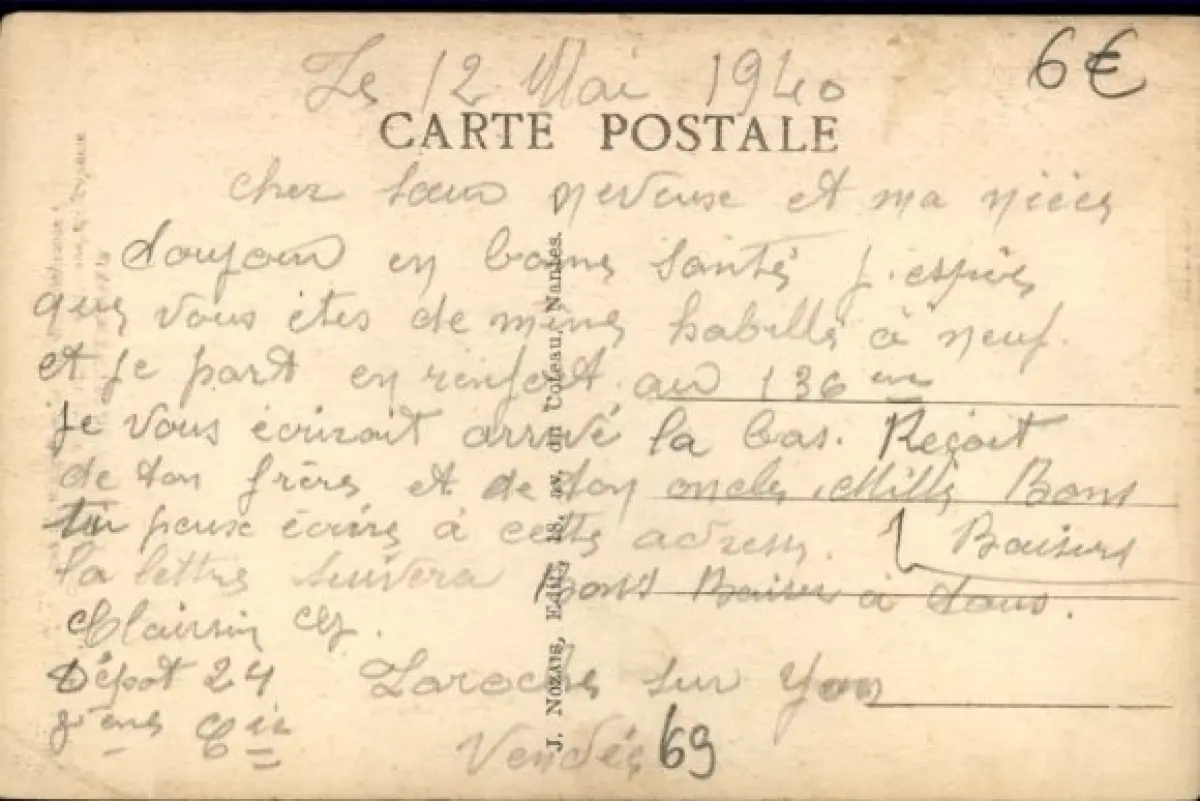 Le 12 Mai 1940
6€
CARTE POSTALE
cher sœur neveuse et ma nièce
toujour en bonne santé j'espère
que vous êtes de même habillé à neuf.
et je part en renfort au 136 eme
je vous écrirait arrivé la bas. Reçoit
de ton frère et de ton oncle Mille Bons
Baisers
tu peuse écrire à cette adresse.
la lettre suivera Bons Baiser à tous.
Dépot 24 Laroche sur Yon
Cie
Vendée 69
J. Nozais, Edit., 18, av. du Coteau, Nantes.